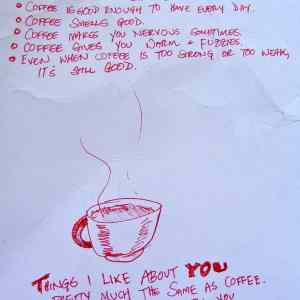 • COFFEE IS GOOD ENOUGH TO HAVE EVERY DAY.
• COFFEE SMELLS GOOD.
• COFFEE MAKES YOU NERVOUS SOMETIMES.
• COFFEE GIVES YOU WARM & FUZZIES.
• EVEN WHEN COFFEE IS TOO STRONG OR TOO WEAK,
IT'S STILL GOOD.
THINGS I LIKE ABOUT YOU
PRETTY MUCH THE SAME AS COFFEE.
YOU